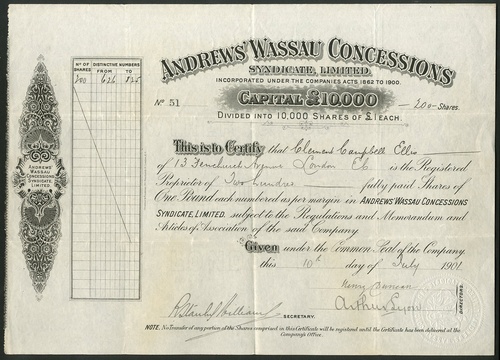 Nº OF SHARES
DISTINCTIVE NUMBERS
FROM TO
200 626 825
ANDREWS' WASSAU CONCESSIONS
SYNDICATE, LIMITED.
INCORPORATED UNDER THE COMPANIES ACTS, 1862 TO 1900.
CAPITAL £10,000
Nº 51
200 Shares.
DIVIDED INTO 10,000 SHARES OF £1 EACH.
This is to Certify that Clement Campbell Ellis
of 13 Fenchurch Avenue London EC is the Registered
Proprietor of Two hundred fully paid Shares of
One Pound each numbered as per margin in ANDREWS' WASSAU CONCESSIONS
SYNDICATE, LIMITED, subject to the Regulations and Memorandum and
Articles of Association of the said Company.
Given under the Common Seal of the Company,
this 10th day of July 1901.
ANDREWS' WASSAU CONCESSIONS SYNDICATE, LIMITED
Henry Duncan
Arthur Lyon
DIRECTORS.
SECRETARY.
NOTE. No Transfer of any portion of the Shares comprised in this Certificate will be registered until the Certificate has been delivered at the
Company's Office.